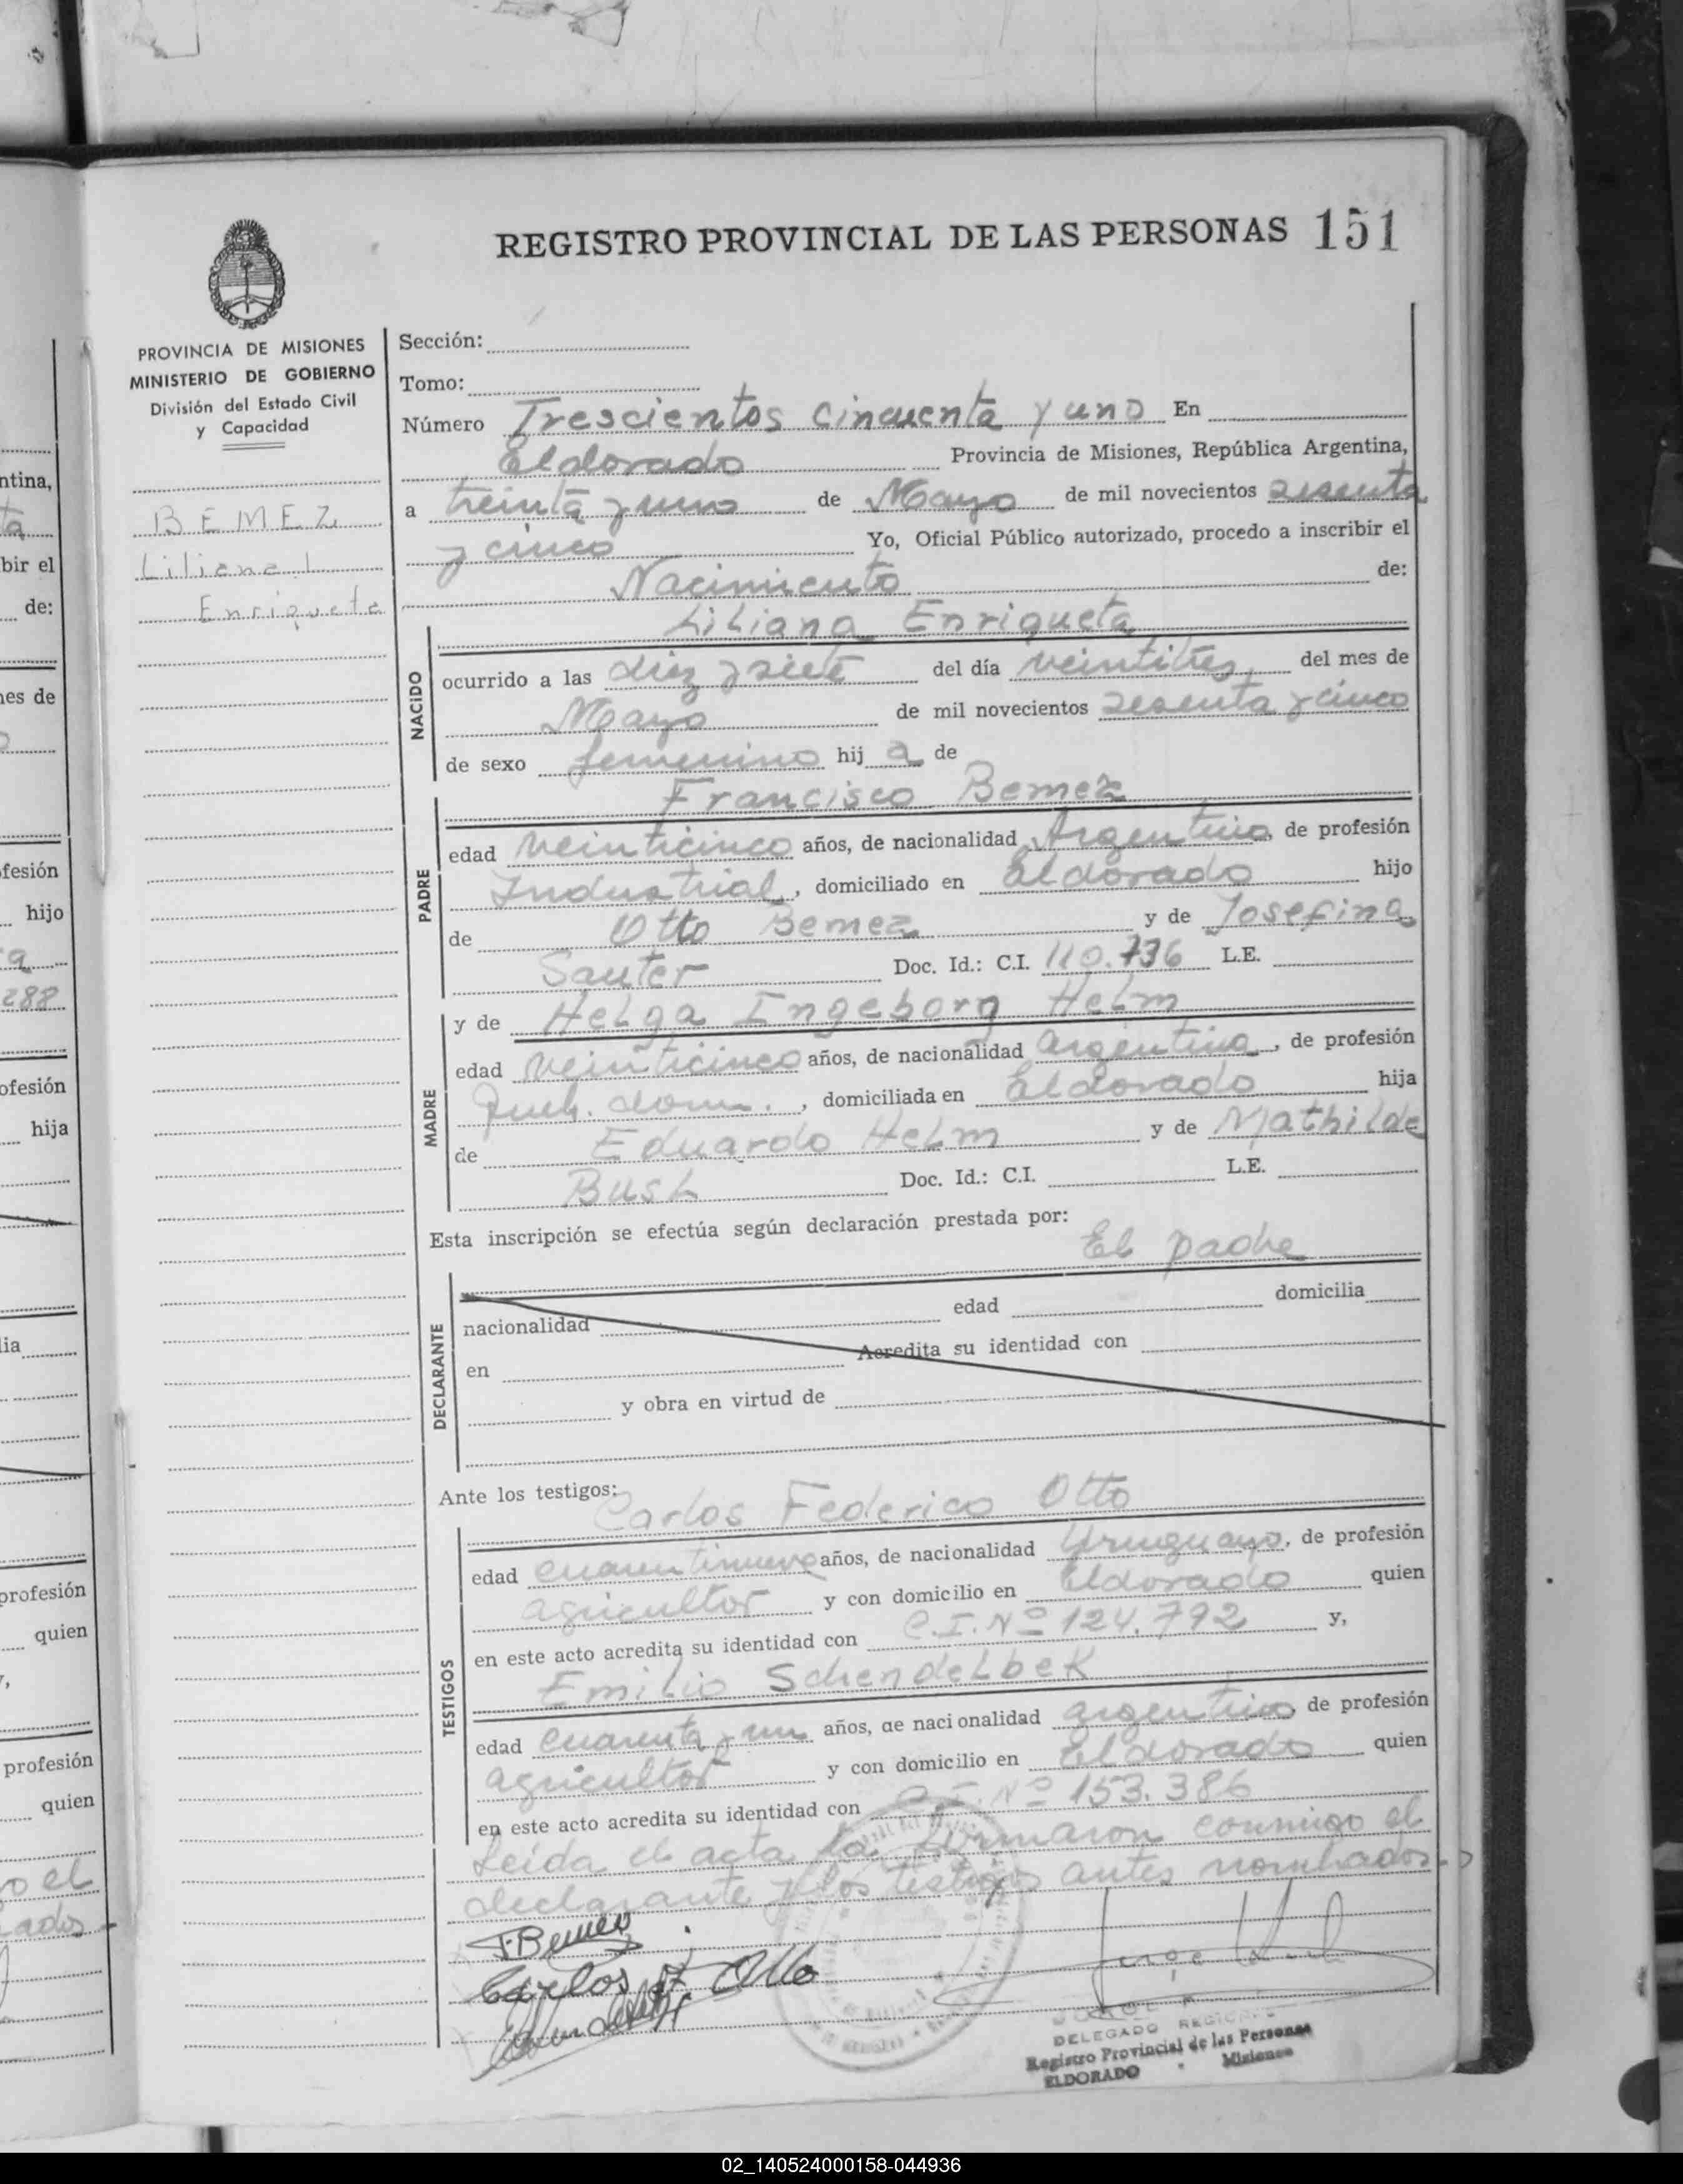 REGISTRO PROVINCIAL DE LAS PERSONAS 151
PROVINCIA DE MISIONES
MINISTERIO DE GOBIERNO
División del Estado Civil
y Capacidad
BEMEZ
Liliana
Enriqueta
Sección:
Tomo:
Número Trescientos cincuenta y uno En
Eldorado Provincia de Misiones, República Argentina,
a treinta y uno de Mayo de mil novecientos sesenta
y cinco Yo, Oficial Público autorizado, procedo a inscribir el
Nacimiento de:
Liliana Enriqueta
NACIDO
ocurrido a las diez y siete del día veintitres del mes de
Mayo de mil novecientos sesenta y cinco
de sexo femenino hij a de
Francisco Bemez
PADRE
edad veinticinco años, de nacionalidad Argentino, de profesión
Industrial, domiciliado en Eldorado hijo
de Otto Bemez y de Josefina
Sauter Doc. Id.: C.I. 110.736 L.E.
y de Helga Engeborg Helm
MADRE
edad veinticinco años, de nacionalidad argentina, de profesión
Queh. dom., domiciliada en Eldorado hija
de Eduardo Helm y de Mathilde
Bush Doc. Id.: C.I. L.E.
Esta inscripción se efectúa según declaración prestada por:
El padre
DECLARANTE
nacionalidad edad domicilia
en Acredita su identidad con
y obra en virtud de
Ante los testigos:
Carlos Federico Otto
TESTIGOS
edad cuarentinueve años, de nacionalidad Uruguayo, de profesión
agricultor y con domicilio en Eldorado quien
en este acto acredita su identidad con C.I. Nº 124.792 y,
Emilio Schendelbek
edad cuarenta y un años, de nacionalidad argentino, de profesión
agricultor y con domicilio en Eldorado quien
en este acto acredita su identidad con C.I. Nº 153.386
Leida el acta la firmaron conmigo el
declarante y los testigos antes nombrados.
F. Bemez
Carlos F. Otto
DELEGADO REGIONAL
Registro Provincial de las Personas
ELDORADO - Misiones
ntina,
bir el
de:
nes de
ofesión
hijo
288
ofesión
hija
lia
profesión
quien
profesión
quien
o el
ados
02_140524000158-044936